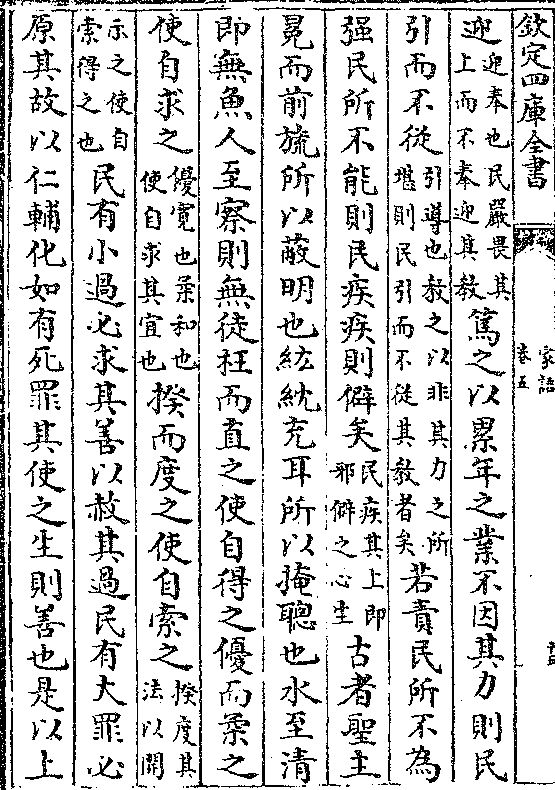 欽定四庫全書
家語
卷五
迎迎奉也民嚴畏其上而不奉迎其教篤之以累年之業不因其力則民
引而不從引導也教之以非其力之所堪則民引而不從其教者矣若責民所不為
强民所不能則民疾疾則僻矣民疾其上即邪僻之心生古者聖主
冕而前旒所以蔽明也紘紞充耳所以掩聰也水至清
即無魚人至察則無徒枉而直之使自得之優而柔之
使自求之優寬也柔和也使自求其宜也揆而度之使自索之揆度其法以開
示之使自索得之也民有小過必求其善以赦其過民有大罪必
原其故以仁輔化如有死罪其使之生則善也是以上